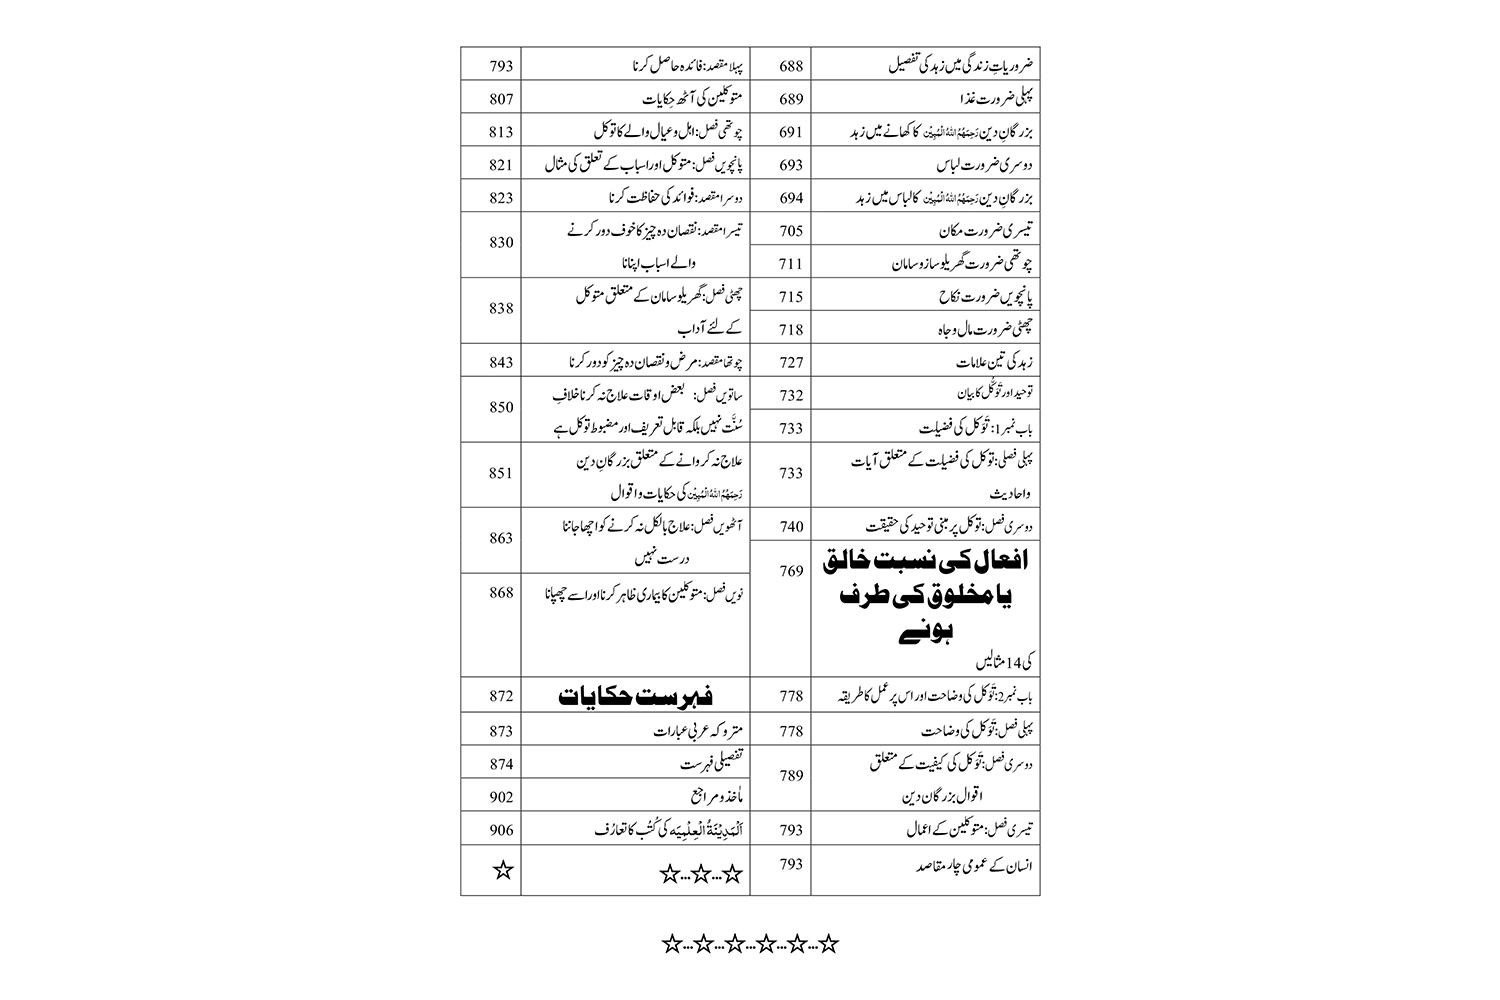 ضروریاتِ زندگی میں زہد کی تفصیل 688
پہلی ضرورت غذا 689
بزرگانِ دین رَحِمَهُمُ اللهُ الْمُبِيْن کا کھانے میں زہد 691
دوسری ضرورت لباس 693
بزرگانِ دین رَحِمَهُمُ اللهُ الْمُبِيْن کا لباس میں زہد 694
تیسری ضرورت مکان 705
چوتھی ضرورت گھریلو سازو سامان 711
پانچویں ضرورت نکاح 715
چھٹی ضرورت مال وجاہ 718
زہد کی تین علامات 727
توحید اور تَوَکُّل کا بیان 732
باب نمبر1: تَوَکل کی فضیلت 733
پہلی فصلی: توکل کی فضیلت کے متعلق آیات 733
واحادیث
دوسری فصل: توکل پر مبنی توحید کی حقیقت 740
افعال کی نسبت خالق 769
یا مخلوق کی طرف
ہونے
کی 14 مثالیں
باب نمبر2: تَوَکل کی وضاحت اور اس پر عمل کا طریقہ 778
پہلی فصل: تَوَکل کی وضاحت 778
دوسری فصل: تَوَکل کی کیفیت کے متعلق 789
اقوال بزرگان دین
تیسری فصل: متوکلین کے اعمال 793
انسان کے عمومی چار مقاصد 793
پہلا مقصد: فائدہ حاصل کرنا 793
متوکلین کی آٹھ حِکایات 807
چوتھی فصل: اہل و عیال والے کا توکل 813
پانچویں فصل: متوکل اور اسباب کے تعلق کی مثال 821
دوسرا مقصد: فوائد کی حفاظت کرنا 823
تیسرا مقصد: نقصان دہ چیز کا خوف دور کرنے 830
والے اسباب اپنانا
چھٹی فصل: گھریلو سامان کے متعلق متوکل 838
کے لئے آداب
چوتھا مقصد: مرض و نقصان دہ چیز کو دور کرنا 843
ساتویں فصل: بعض اوقات علاج نہ کرنا خلافِ 850
سُنَّت نہیں بلکہ قابل تعریف اور مضبوط توکل ہے
علاج نہ کروانے کے متعلق بزرگانِ دین 851
رَحِمَهُمُ اللهُ الْمُبِيْن کی حکایات واقوال
آٹھویں فصل: علاج بالکل نہ کرنے کو اچھا جاننا 863
درست نہیں
نویں فصل: متوکلین کا بیماری ظاہر کرنا اور اسے چھپانا 868
فہرست حکایات 872
متروکہ عربی عبارات 873
تفصیلی فہرست 874
مأخذ و مراجع 902
اَلْمَدِيْنَةُ الْعِلْمِيَه کی کُتُب کا تعارُف 906
☆...☆...☆ ☆
☆...☆...☆...☆...☆...☆